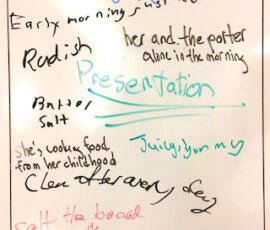 Early morning
her and the porter
alone in the morning
Radish
Presentation
Butter
Salt
she's cooking food
from her childhood
Juicy, Yummy
Clean after every
salt the board